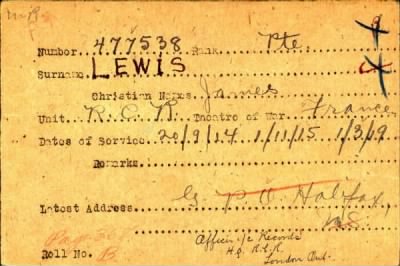 Number 477538 Rank Pte
Surname LEWIS
Christian Names James
Unit R.C.R. Theatre of War France
Dates of Service 20/9/14 1/11/15 1/3/19
Remarks
Latest Address G P O Halifax,
N.S.
Officer i/c Records
H.Q. R.C.R.
London Ont.
Roll No. B